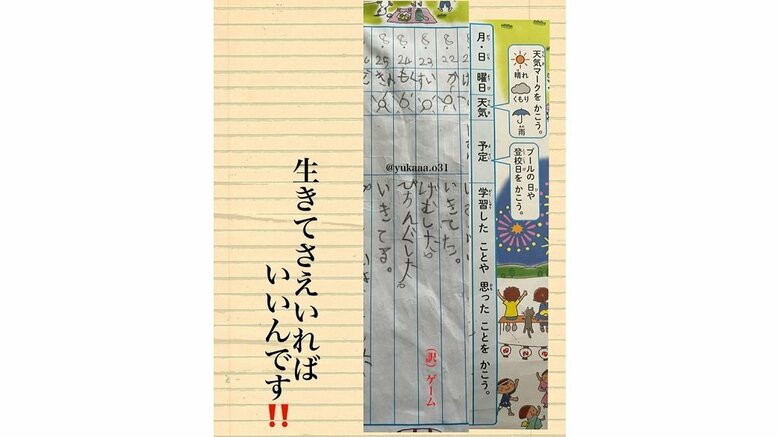 月・日
曜日
天気
予定
学習した ことや 思った ことを かこう。
天気マークを かこう。
晴れ
くもり
雨
プールの 日や
登校日を かこう。
8
22
か
いきてた。
8
23
すい
げむした。
(訳)ゲーム
8
24
もく
8
25
きん
いきてる。
@yukaaa.o31
生きてさえいれば
いいんです‼️